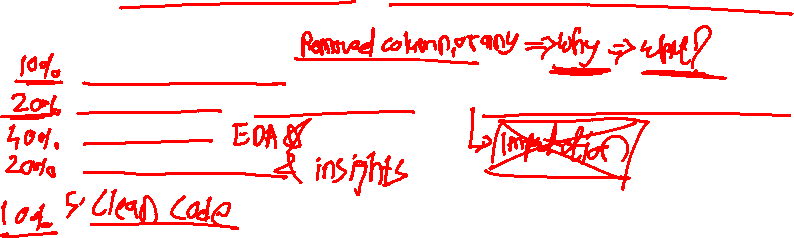 Removed column, or any => why => what?
10%
20%
40% EDA &
20% & insights
10% 5. Clean Code
Imputation